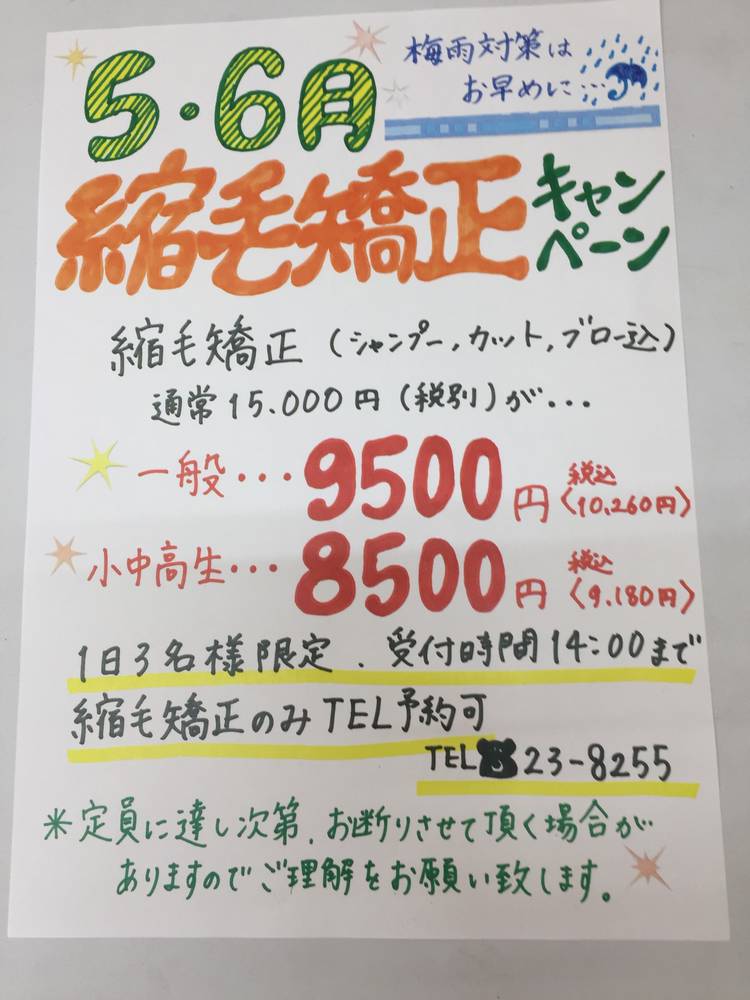 梅雨対策は
お早めに…
5・6月
縮毛矯正キャンペーン
縮毛矯正(シャンプー,カット,ブロー込)
通常15.000円(税別)が...
一般・・・9500円 税込〈10,260円〉
小中高生・・・8500円 税込〈9.180円〉
1日3名様限定、受付時間14:00まで
縮毛矯正のみTEL予約可
TEL☎23-8255
*定員に達し次第、お断りさせて頂く場合が
ありますのでご理解をお願い致します。